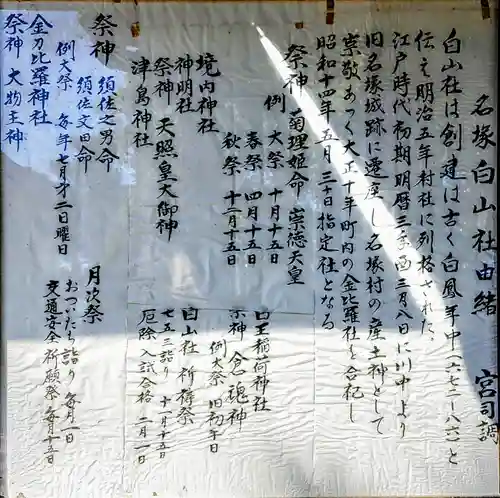 名塚白山社由緒 宮司調
白山社は創建は古く白鳳年中(六七二-八六)と
伝え明治五年村社に列格された、
江戸時代初期明暦三年酉三月八日に川中より
旧名塚城跡に遷座し名塚村の産土神として
崇敬あつく大正十年町内の金比羅社を合祀し
昭和十四年五月三十日指定社となる
祭神 菊理姫命 崇徳天皇
例 大祭 十月十五日
春祭 四月十五日
秋祭 十二月十五日
境内神社
神明社
祭神 天照皇大御神
津島神社
祭神 須佐之男命
須佐文田命
例大祭 毎年七月才二日曜日
金刀比羅神社
祭神 大物主神
白玉稲荷神社
祭神 倉魂神
例大祭 旧初午日
白山社祈祷祭
七五三詣り 十一月十五日
厄除入試合格 二月一日
月次祭
おついたち詣り 毎月一日
交通安全祈願祭 毎月十五日